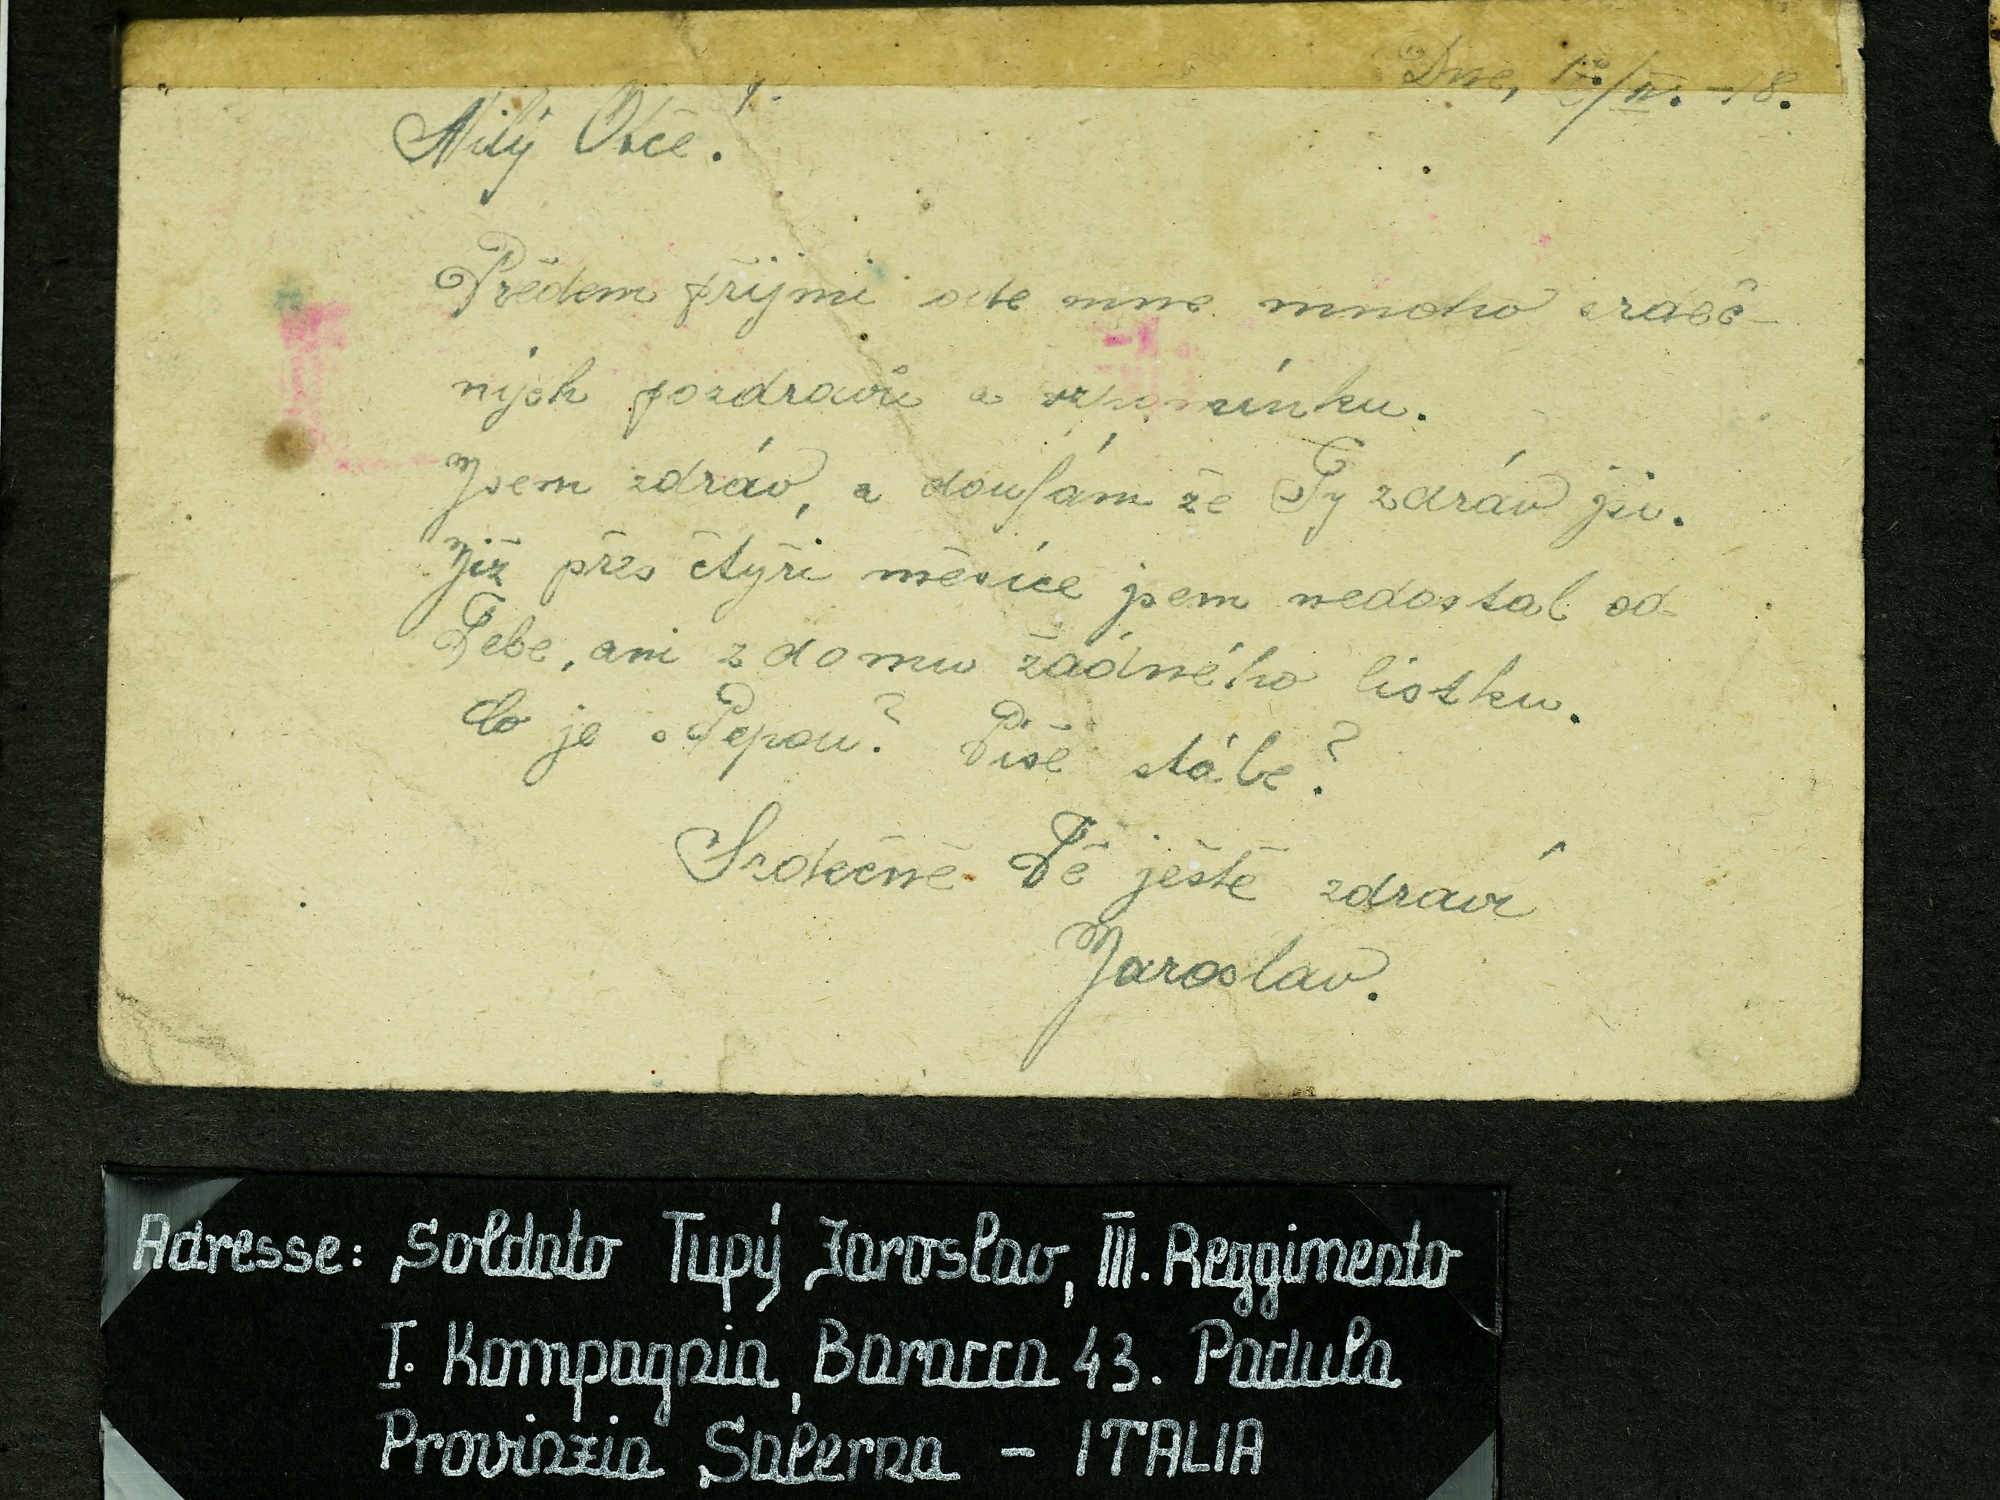 Dne, /IV. -18.
Milý Otče!
Předem přijmi ode mne mnoho srdeč-
ných pozdravů a vzpomínku.
Jsem zdráv, a doufám že Ty zdráv jsi.
Již přes čtyři měsíce jsem nedostal od
Tebe, ani z domu žádného lístku.
Co je s Pepou? Píše stále?
Srdečně Tě ještě zdraví
Jaroslav.
Adresse: Soldato Tupý Jaroslav, III. Reggimento
I. Kompagnia, Baracca 43. Padula
Provinzia Salerna - ITALIA